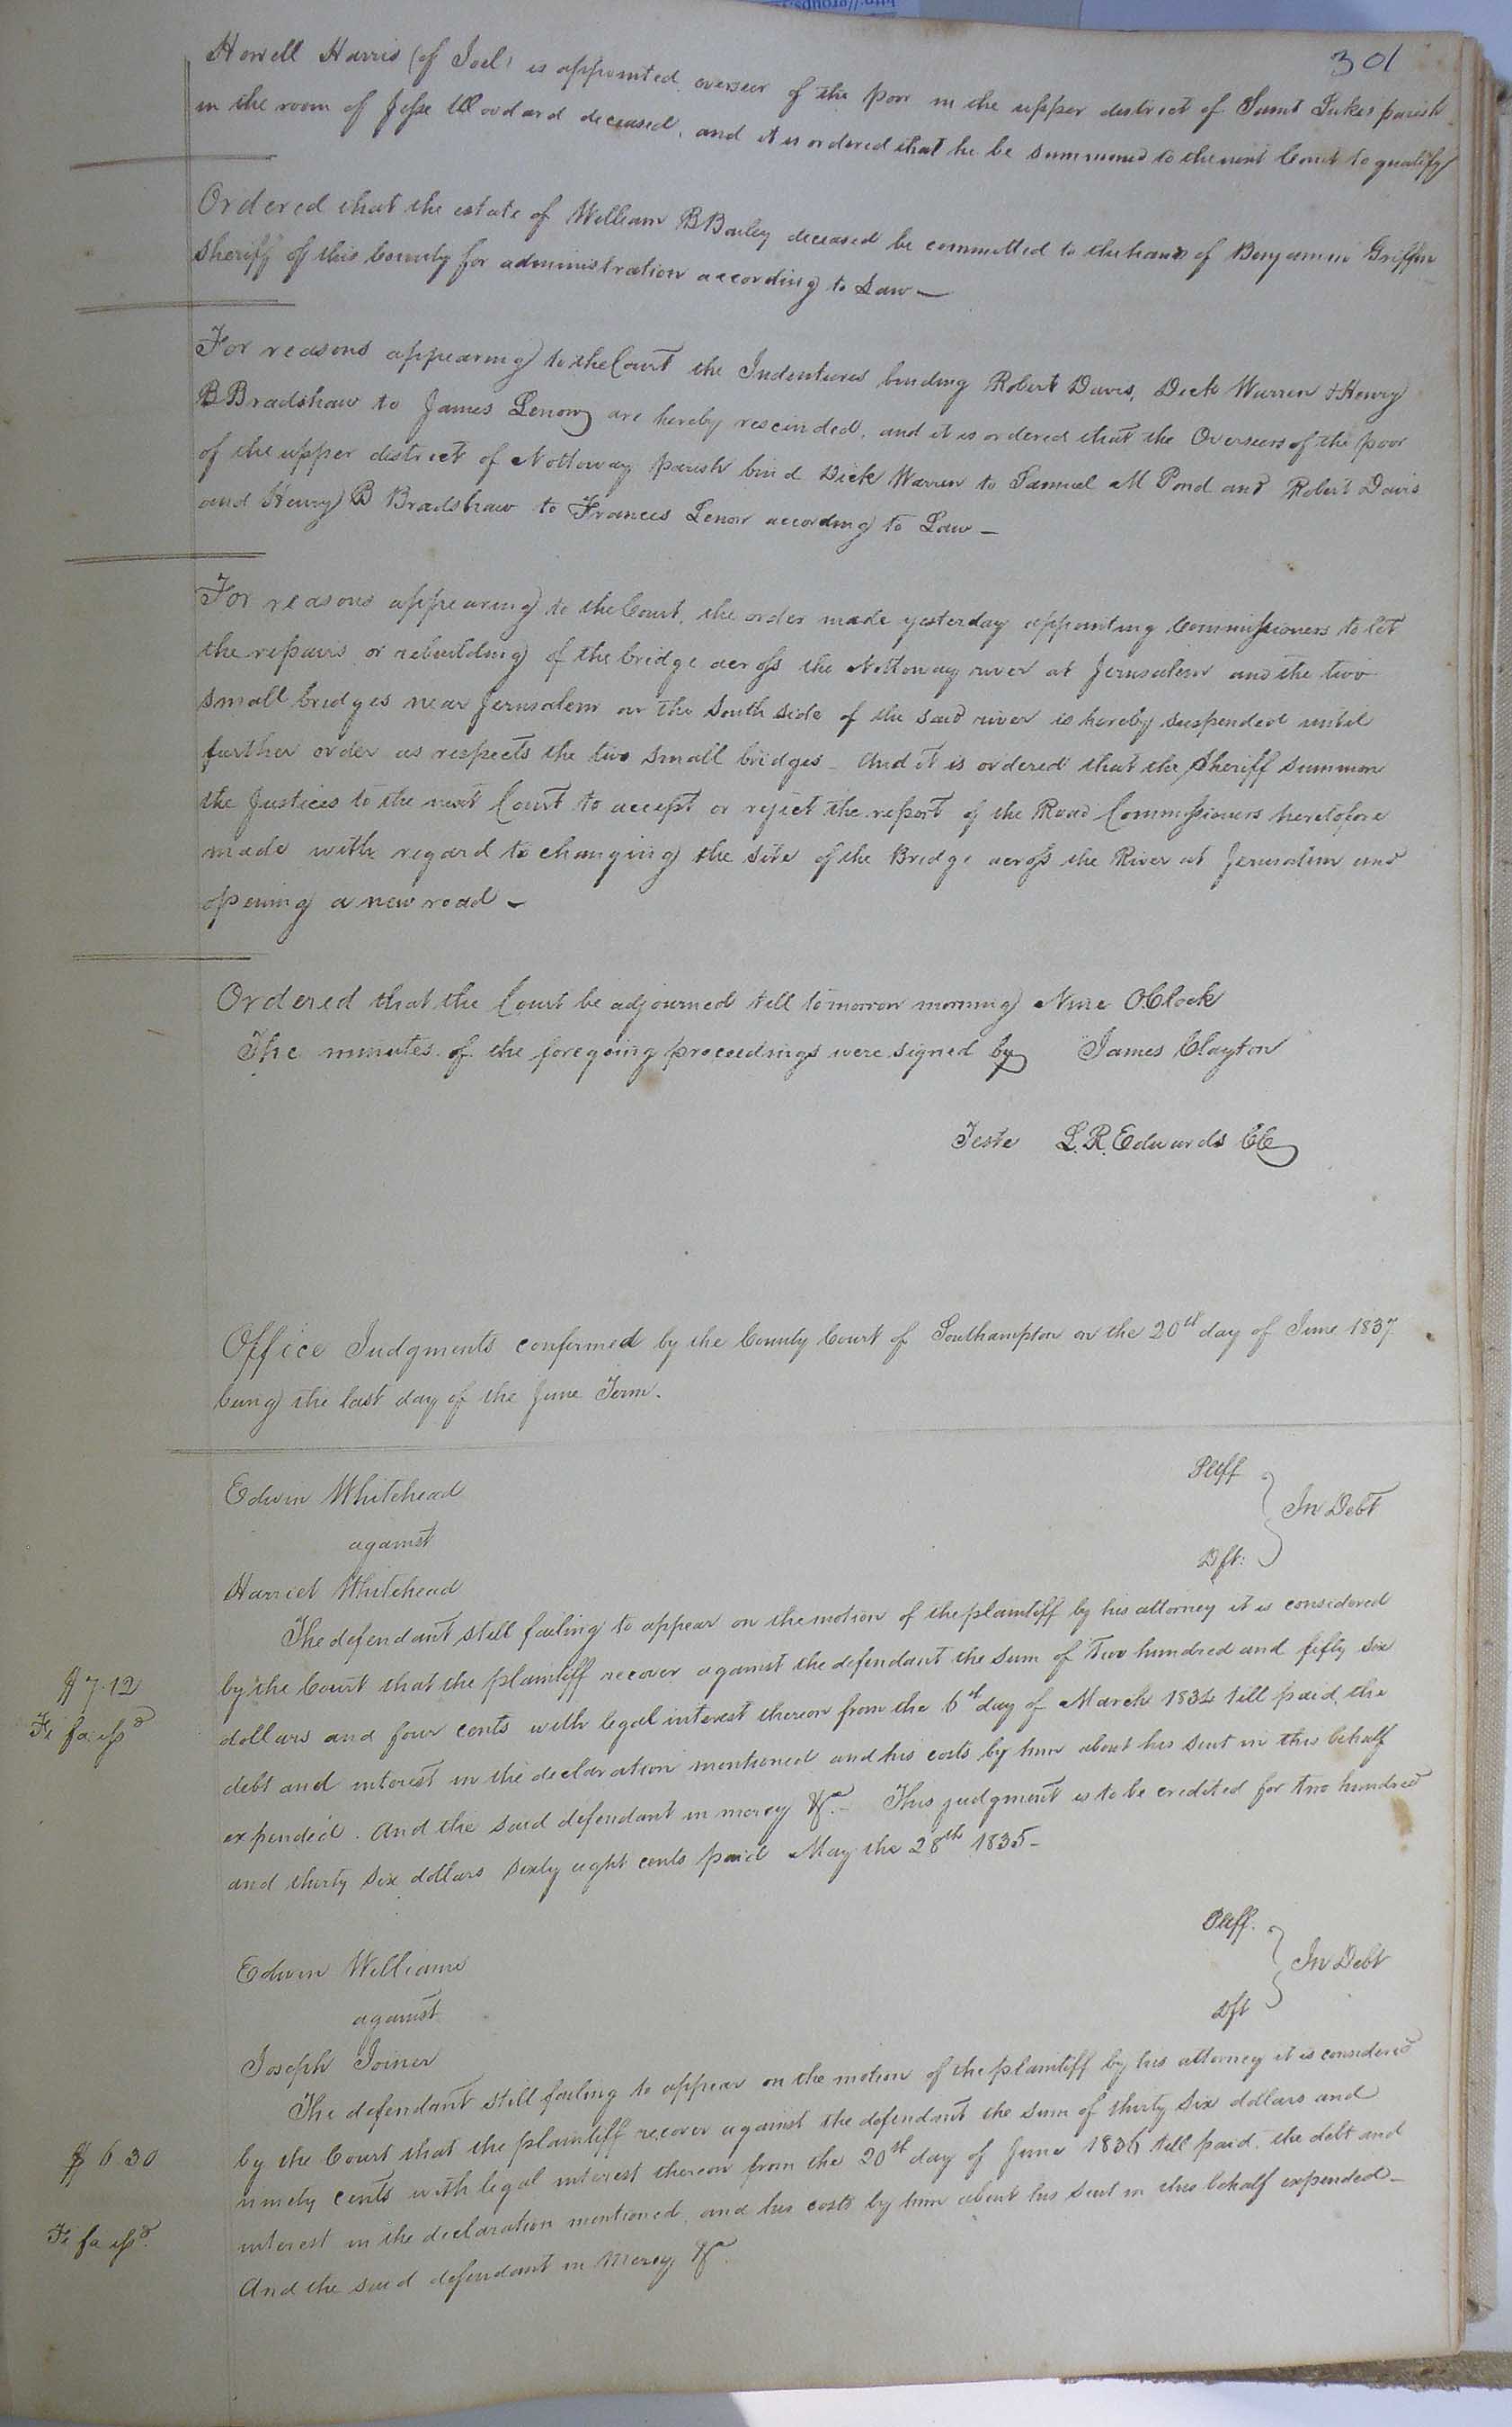 301
Howell Harris (of Joel) is appointed overseer of the poor in the upper district of Saint Lukes parish
in the room of Jesse Woodard deceased, and it is ordered that he be summoned to the next Court to qualify
Ordered that the estate of William B Bailey deceased be committed to the hands of Benjamin Griffin
Sheriff of this County for administration according to Law —
For reasons appearing to the Court the Indentures binding Robert Davis, Dick Warren & Henry
B Bradshaw to James Lenow are hereby rescinded, and it is ordered that the Overseers of the poor
of the upper district of Nottoway parish bind Dick Warren to Samuel M Pond and Robert Davis
and Henry B Bradshaw to Frances Lenow according to Law —
For reasons appearing to the Court, the order made yesterday appointing Commissioners to let
the repairs or rebuilding of the bridge across the Nottoway river at Jerusalem and the two
small bridges near Jerusalem on the South side of the said river is hereby suspended until
further order as respects the two small bridges — And it is ordered that the Sheriff summon
the Justices to the next Court to accept or reject the report of the Road Commissioners heretofore
made with regard to changing the site of the Bridge across the River at Jerusalem and
opening a new road —
Ordered that the Court be adjourned till tomorrow morning Nine OClock
The minutes of the foregoing proceedings were signed by James Clayton
Teste L. R. Edwards CC
Office Judgments confirmed by the County Court of Southampton on the 20th day of June 1837
being the last day of the June Term.
Edwin Whitehead Plff
against In Debt
Harriet Whitehead Dft:
The defendant still failing to appear on the motion of the plaintiff by his attorney it is considered
by the Court that the plaintiff recover against the defendant the sum of Two hundred and fifty six
$7.12
dollars and four cents with legal interest thereon from the 6th day of March 1834 till paid, the
Fi fa issd
debt and interest in the declaration mentioned and his costs by him about his suit in this behalf
expended. And the said defendant in mercy &c. — This judgment is to be credited for two hundred
and thirty six dollars sixty eight cents paid May the 28th 1835 —
Edwin Williams Plff.
against In Debt
Joseph Joiner Dft
The defendant still failing to appear on the motion of the plaintiff by his attorney it is considered
by the Court that the plaintiff recover against the defendant the sum of thirty six dollars and
$6 30
ninety cents with legal interest thereon from the 20th day of June 1836 till paid, the debt and
interest in the declaration mentioned, and his costs by him about his suit in this behalf expended —
Fi fa issd.
And the said defendant in Mercy &c.